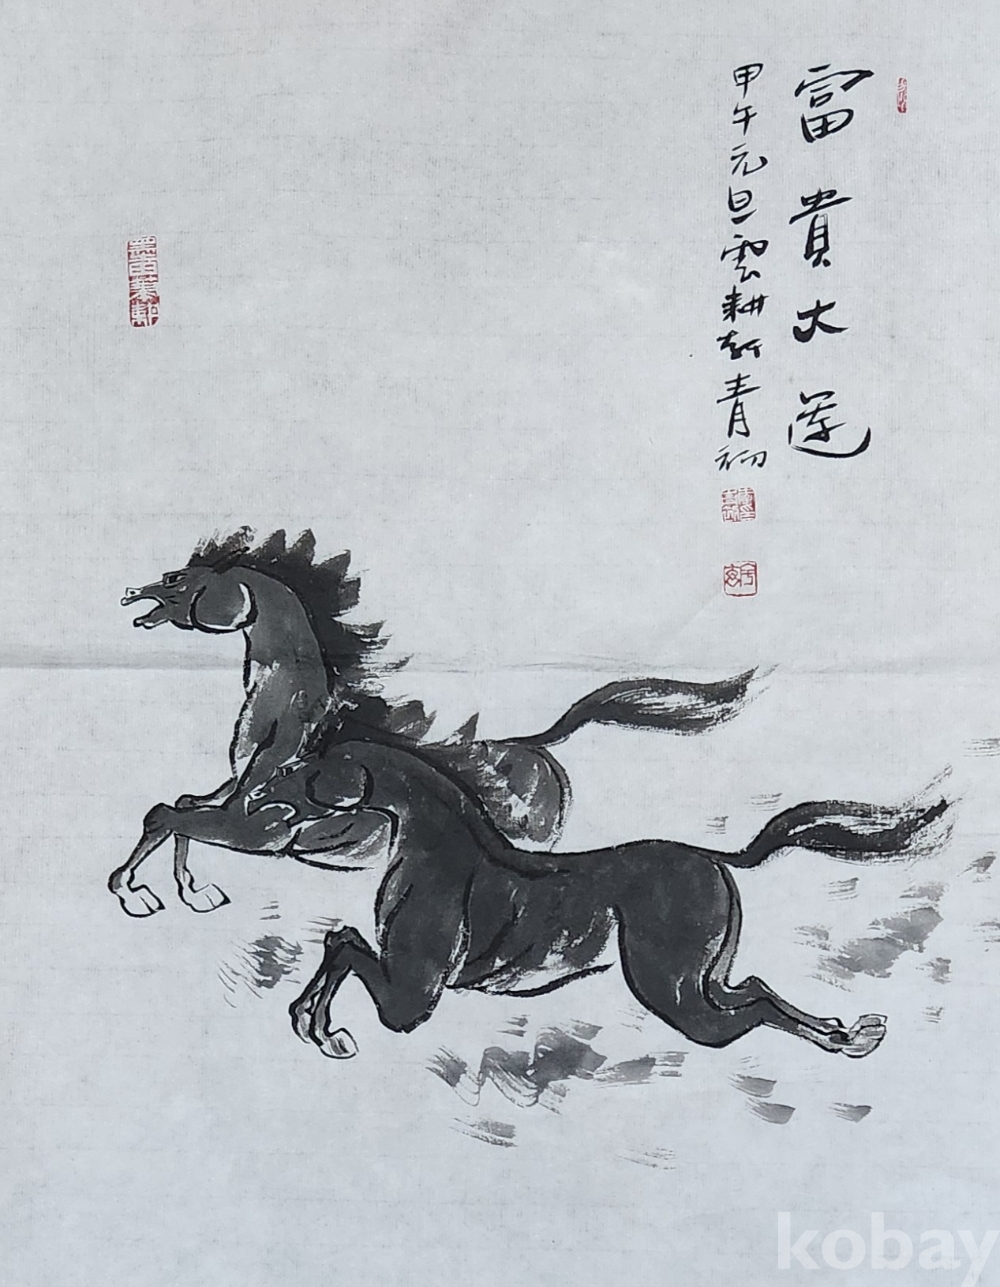 富貴大運
甲午元旦雲耕軒青初
kobay